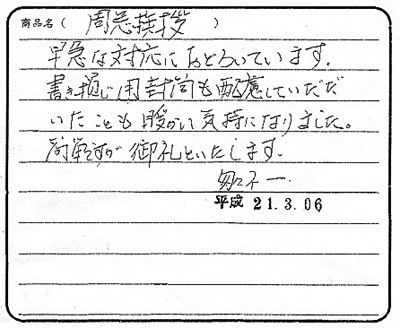 商品名（ 周忌挨拶 ）
早急な対応におどろいています。
書き損じ用封筒も配慮していただ
いたことも暖かい気持になりました。
簡単ですが御礼といたします。
平成 21.3.06